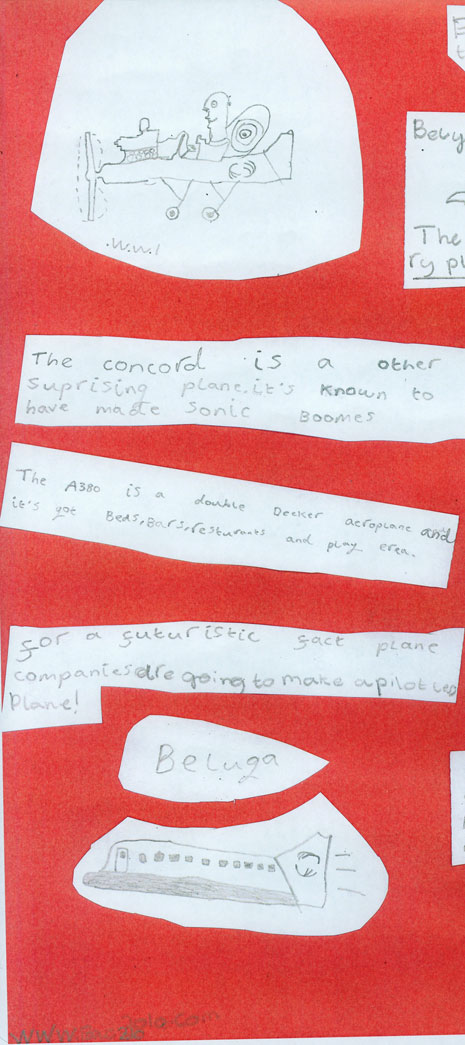 W.W.1
Belu
The
ry pl
The concord is a other
Suprising plane.it's Known to
have made Sonic Boomes
The A380 is a double Decker aeroplane and
it's got Beds,Bars,resturants and play erea.
for a futuristic fact plane
companies are going to make a pilot les
Plane!
Beluga
www.